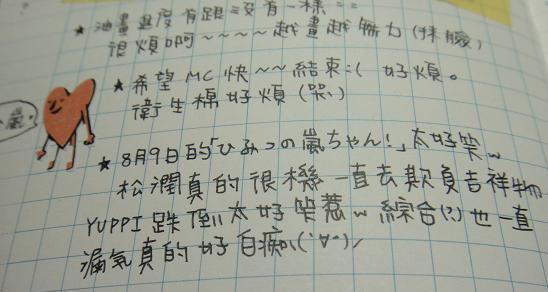 ★ 油畫進度有跟沒有一樣==
很煩啊～～～～越畫越無力(抹臉)
★ 希望MC快～～結束:( 好煩。
衛生棉好煩(哭)
嵐。
★ 8月9日的「ひみつの嵐ちゃん!」太好笑w
松潤真的很機一直去欺負吉祥物
YUPPI跌倒太好笑惹w 綜合(?)也一直
漏氣真的好白痴